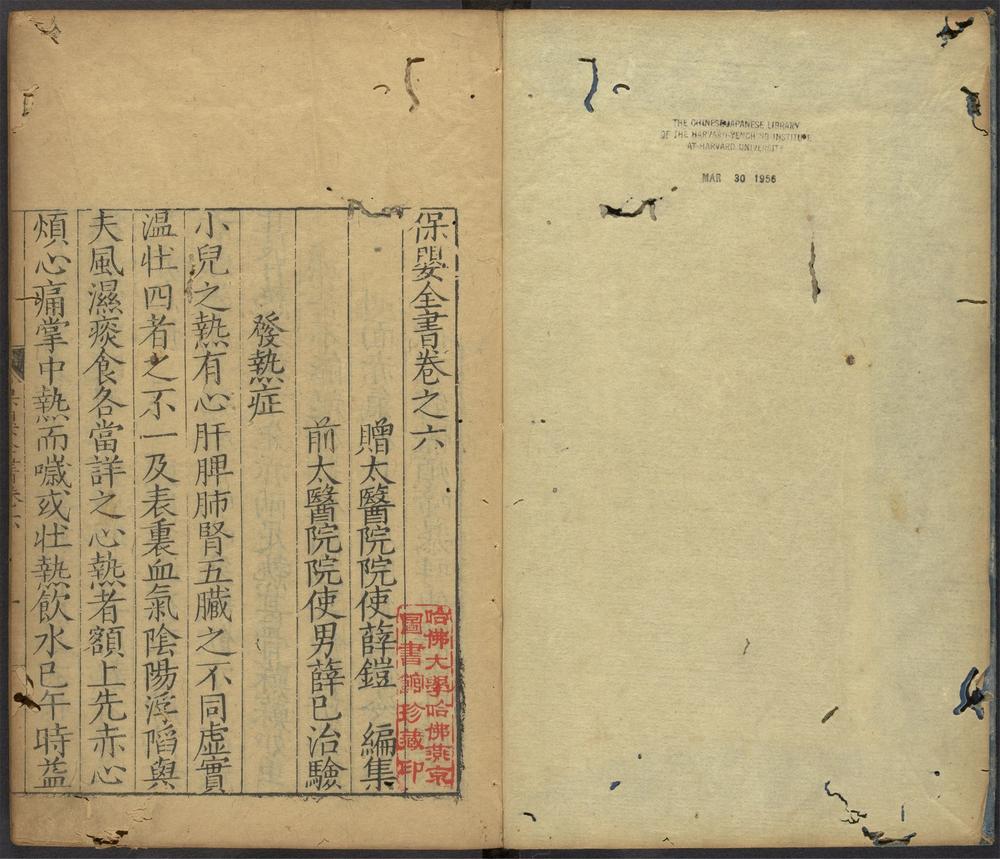 THE CHINESE-JAPANESE LIBRARY
OF THE HARVARD-YENCHING INSTITUTE
AT HARVARD UNIVERSITY
MAR 30 1956
保嬰全書卷之六
贈太醫院院使薛鎧 編集
前太醫院院使男薛已治驗
發熱症
小兒之熱有心肝脾肺腎五臟之不同虛實
温壯四者之不一及表裏血氣陰陽浮陷與
夫風濕痰食各當詳之心熱者額上先赤心
煩心痛掌中熱而噦或壯熱飲水巳午時益
哈佛大學哈佛燕京
圖書館珍藏印